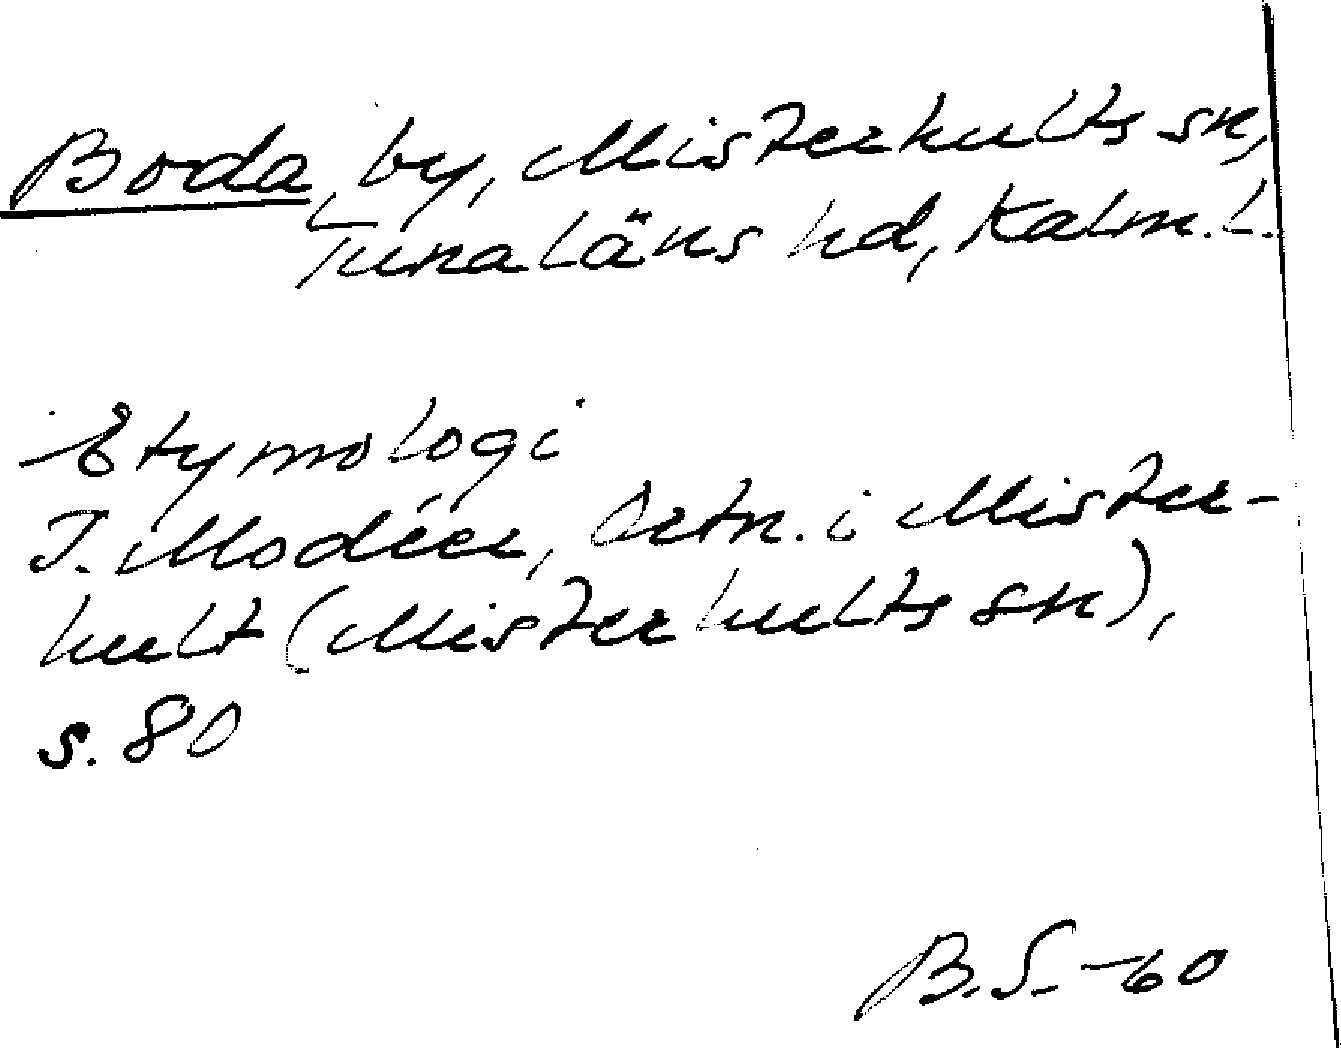 Boda, by, Misterhults sn,
Tunaläns hd, Kalm. l.
Etymologi
I. Modéer, Ortn. i Mister-
hult (Misterhults sn),
s. 80
B.S. -60